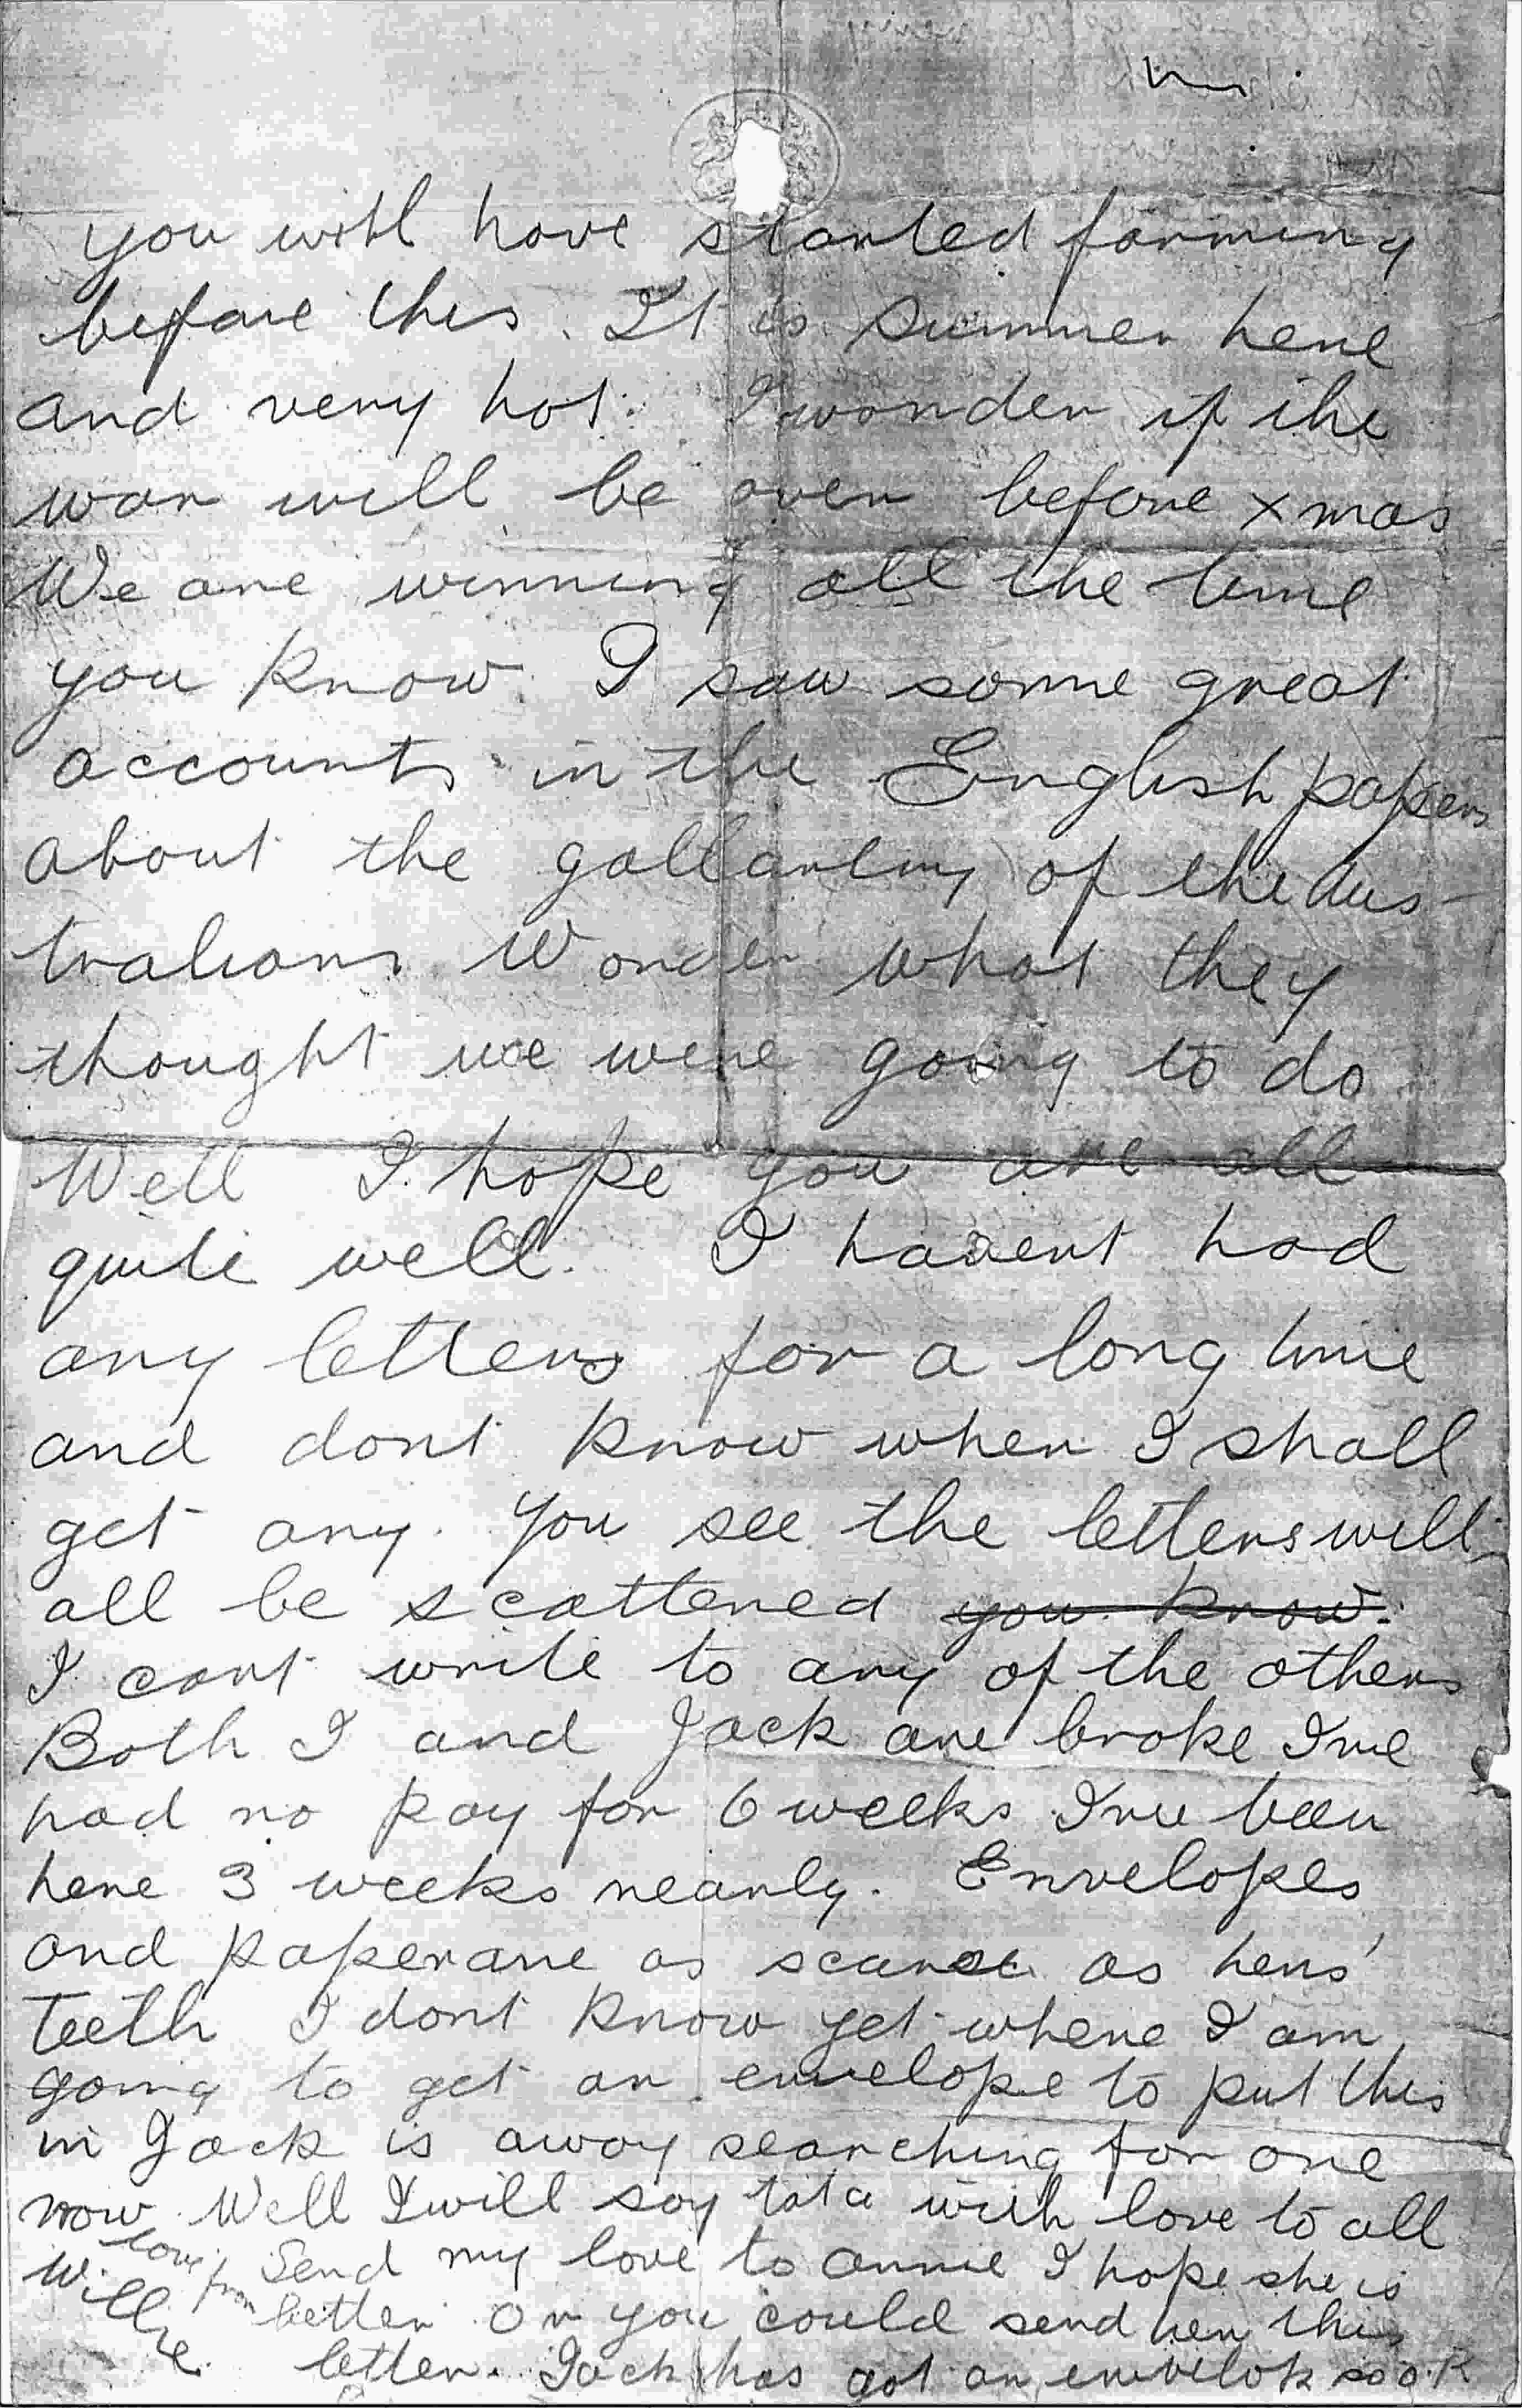 you will have started farming
before this. It is summer here
and very hot. I wonder if the
war will be over before xmas
We are winning all the time
you know. I saw some great
accounts in the English papers
about the gallantry of the Aus-
tralians Wonder what they
thought we were going to do
Well I hope you are all
quite well. I havent had
any letters for a long time
and dont know when I shall
get any. You see the letters will
all be scattered you know.
I cant write to any of the others
Both I and Jack are broke Ive
had no pay for 6 weeks Ive been
here 3 weeks nearly. Envelopes
and paper are as scarce as hens'
teeth I dont know yet where I am
going to get an envelope to put this
in Jack is away searching for one
now. Well I will say tata with love to all
love from
Willie.
Send my love to Annie I hope she is
better. Or you could send her this
letter. Jack has got an envelok so O.K